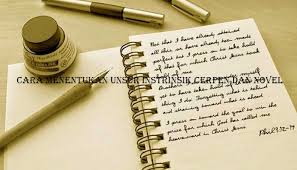 Not that I have already obtained
all this or have already been made
perfect but I press on to take hold
of that for which Christ Jesus took
hold of me.
CARA MENENTUKAN UNSUR INSTRINSIK CERPEN DAN NOVEL
Brothers
yet to have taken hold of it. But one
thing I do: Forgetting what is behind
and straining toward what is ahead
I press on toward the goal to win the
prize for which God has called me
heavenward in Christ Jesus.
Phil 3:12-14